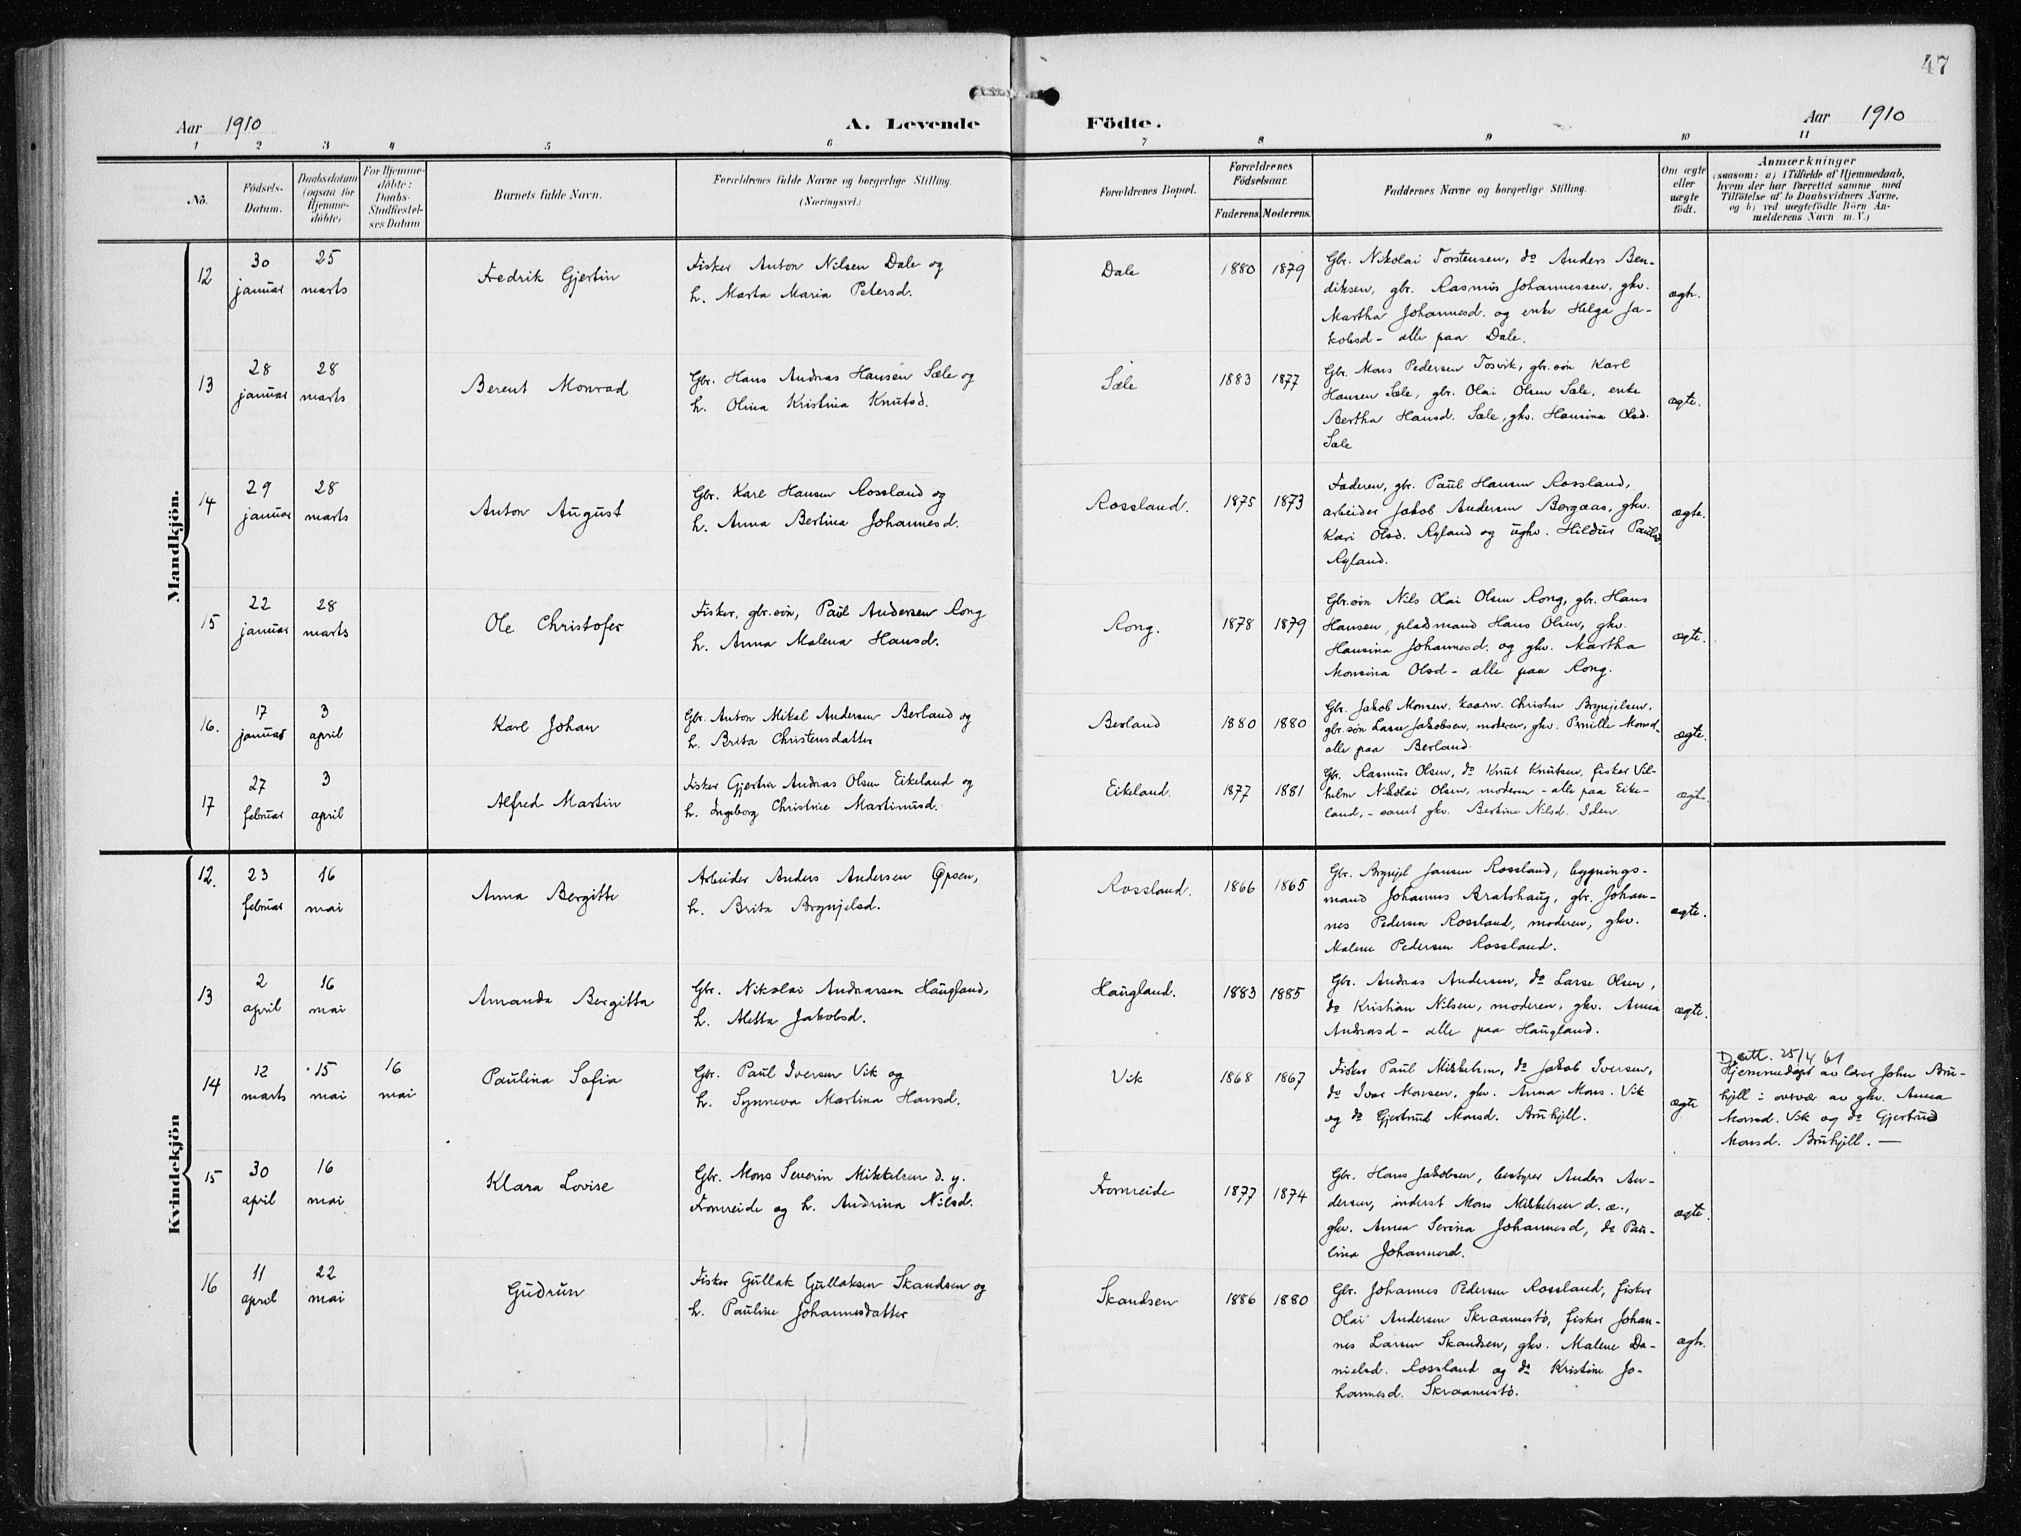 47
Aar 1910
A. Levende Födte.
Aar 1910
1 2 3 4 5 6 7 8 9 10 11
No.
Födsels-
Datum.
Daabsdatum
(ogsaa for
Hjemme-
döbte)
For Hjemme-
döbte:
Daabs-
Stadfæstel-
ses Datum
Barnets fulde Navn.
Forældrenes fulde Navne og borgerlige Stilling.
(Næringsvei.)
Forældrenes Bopæl.
Forældrenes
Födselsaar.
Faderens. Moderens.
Faddernes Navne og borgerlige Stilling.
Om ægte
eller
uægte
födt.
Anmærkninger
(saasom: a) i Tilfælde af Hjemmedaab,
hvem der har forrettet samme med
Tilföielse af to Daabsvidners Navne,
og b) ved uægtefödte Börn An-
melderens Navn m. V.)
Mandkjön.
12
30
januar
25
marts
Fredrik Gjertin
Fisker Anton Nilsen Dale og
h. Marta Maria Petersd.
Dale
1880 1879
Gbr. Nikolai Torstensen, do Anders Ben-
diksen, gbr. Rasmus Johannessen, gkv.
Martha Johannesd. og enke Helga Ja-
kobsd - alle paa Dale.
ægte.
13
28
januar
28
marts
Berent Monrad
Gbr. Hans Andreas Hansen Sæle og
h. Olina Kristina Knutsd.
Sæle
1883 1877
Gbr. Mons Pedersen Tosvik, gbr.søn Karl
Hansen Sæle, gbr. Olai Olsen Sæle, enke
Bertha Hansd. Sæle, gkv. Hansina Olsd.
Sæle
ægte.
14
29
januar
28
marts
Anton August
Gbr. Karl Hansen Rossland og
h. Anna Bertina Johannesd.
Rossland.
1875 1873
Faderen, gbr. Paul Hansen Rossland,
arbeider Jakob Andersen Bergaas, gkv.
Kari Olsd. Ryland og ugkv. Hildur Paulsd
Ryland.
ægte.
15
22
januar
28
marts
Ole Christofer
Fisker, gbr.søn, Paul Andersen Rong
h. Anna Malena Hansd.
Rong.
1878 1879
Gbr.søn Nils Olai Olsen Rong, gbr. Hans
Hansen, pladsmand Hans Olsen, gkv.
Hansina Johannesd. og gkv. Martha
Monsina Olsd - alle paa Rong.
ægte.
16.
17
januar
3
april
Karl Johan
Gbr. Anton Mikal Andersen Berland og
h. Brita Christensdatter
Berland
1880 1880
Gbr. Jakob Monsen, kaarm. Christen Brynjelsen,
gbr.søn Lasse Jakobsen, moderen, gkv. Pernille Monsd-
alle paa Berland.
ægte.
17
27
februar
3
april
Alfred Martin
Fisker Gjertin Andreas Olsen Eikeland og
h. Ingeborg Christine Martinusd.
Eikeland.
1877 1881
Gbr. Rasmus Olsen, do Knut Knutsen, fisker Vil-
helm Nikolai Olsen, moderen - alle paa Eike-
land, - samt gkv. Bertine Nilsd. Islen
ægte.
Kvindekjön
12.
23
februar
16
mai
Anna Bergitte
Arbeider Anders Andersen Opsen,
h. Brita Brynjelsd.
Rossland.
1866 1865
Gbr. Brynjel Jansen Rossland, bygnings-
mand Johannes Aratshaug, gbr. Johan-
nes Pedersen Rossland, moderen, gkv.
Malene Pedersen Rossland.
ægte.
13
2
april
16
mai
Amanda Bergitta
Gbr. Nikolai Andreassen Haugland,
h. Aletta Jakobsd.
Haugland.
1883 1885
Gbr. Andreas Andersen, do Lars Olsen,
do Kristian Nilsen, moderen, gkv. Anna
Andreasd - alle paa Haugland.
ægte.
14
12
marts
15
mai
16
mai
Paulina Sofia
Gbr. Paul Iversen Vik og
h. Synneva Martina Hansd.
Vik
1868 1867
Fisker Paul Mikkelsen, do Jakob Iversen,
do Ivar Monsen, gkv. Anna Mons. Vik
og do Gjertrud Monsd. Bruhjell.
ægte
D. att. 25/4 61
Hjemmedøpt av lærer John Bru-
hjell i overvær av gkv. Anna
Monsd. Vik og do Gjertrud
Monsd. Bruhjell. —
15
30
april
16
mai
Klara Lovise
Gbr. Mons Severin Mikkelsen d. y.
Fornreide og h. Andrina Nilsd.
Fornreide
1877 1874
Gbr. Hans Jakobsen, bestyrer Anders An-
dersen, inderst Mons Mikkelsen d. æ.,
gkv. Anna Serina Johannesd, do Pau-
lina Johannesd.
ægte.
16
11
april
22
mai
Gudrun
Fisker Gullak Gullaksen Skandsen og
h. Pauline Johannesdatter
Skandsen
1886 1880
Gbr. Johannes Pedersen Rossland, fisker
Olai Andersen Skraamestø, fisker Johan-
nes Larsen Skandsen, gkv. Malene Da-
nielsd. Rossland og do Kristine Jo-
hannesd. Skraamestø.
ægte.